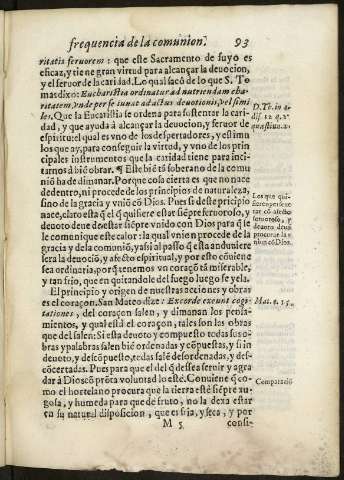 frequencia de la comunion. 93
ritatis feruorem: que este Sacramento de suyo es
eficaz, y tiene gran virtud para alcançar la deuocion,
y el feruor de la caridad. Lo qual sacò de lo que S. To
mas dixo: Eucharistia ordinatur ad nutriendam cha-
ritatem, vnde per se iuuat ad actus deuotionis, vel simi
les. Que la Eucaristia se ordena para sustentar la cari-
dad, y que ayuda à alcançar la deuocion, y feruor de
espiritu: el qual es vno de los despertadores, y estimu
los que ay, para conseguir la virtud, y vno de los prin
cipales instrumentos que la caridad tiene para inci-
tarnos à biẽ obrar. ¶ Este biẽ tã soberano de la comu
niõ ha de dimanar. Porque cosa cierta es que no nace
de dentro, ni procede de los principios de naturaleza,
sino de la gracia y vniõ cõ Dios. Pues si deste pricipio
nace, claro està q̃ el q̃ quisiere estar siẽpre feruoroso, y
deuoto deue de estar siẽpre vnido con Dios para q̃ se
le comunique este calor: la qual vnion procede de la
gracia y de la comuniõ, y assi al passo q̃ esta anduuiere
sera la deuociõ, y afecto espiritual, y por esto cõuiene
sea ordinaria, porq̃ tenemos vn coraçõ tã miserable,
y tan frio, que en quitandole del fuego luego se yela.
El principio y origen de nuestras acciones y obras
es el coraçon. San Mateo dize: Ex corde exeunt cogi
tationes, del coraçon salen, y dimanan los pensa-
mientos, y qual està el coraçon, tales son las obras
que del salen: Si esta deuoto y compuesto todas sus o-
bras y palabras salen biẽ ordenadas y cõpuestas, y si in
deuoto, y descõpuesto, todas salẽ desordenadas, y des-
cõcertadas. Pues para que el del q̃ dessea seruir y agra
dar à Dios cõ prõta voluntad lo estè. Conuiene q̃ co-
mo el hortelano procura que la tierra estè siẽpre xu-
gosa, y humeda para que dè fruto, no la dexa estar
en su natural disposicion, que es fria, y seca, y por
M 5 consi-
D. To. in 4.
dis. 12 q. 2.
Los que qui-
Dios.
Mat. c. 15.
Comparació